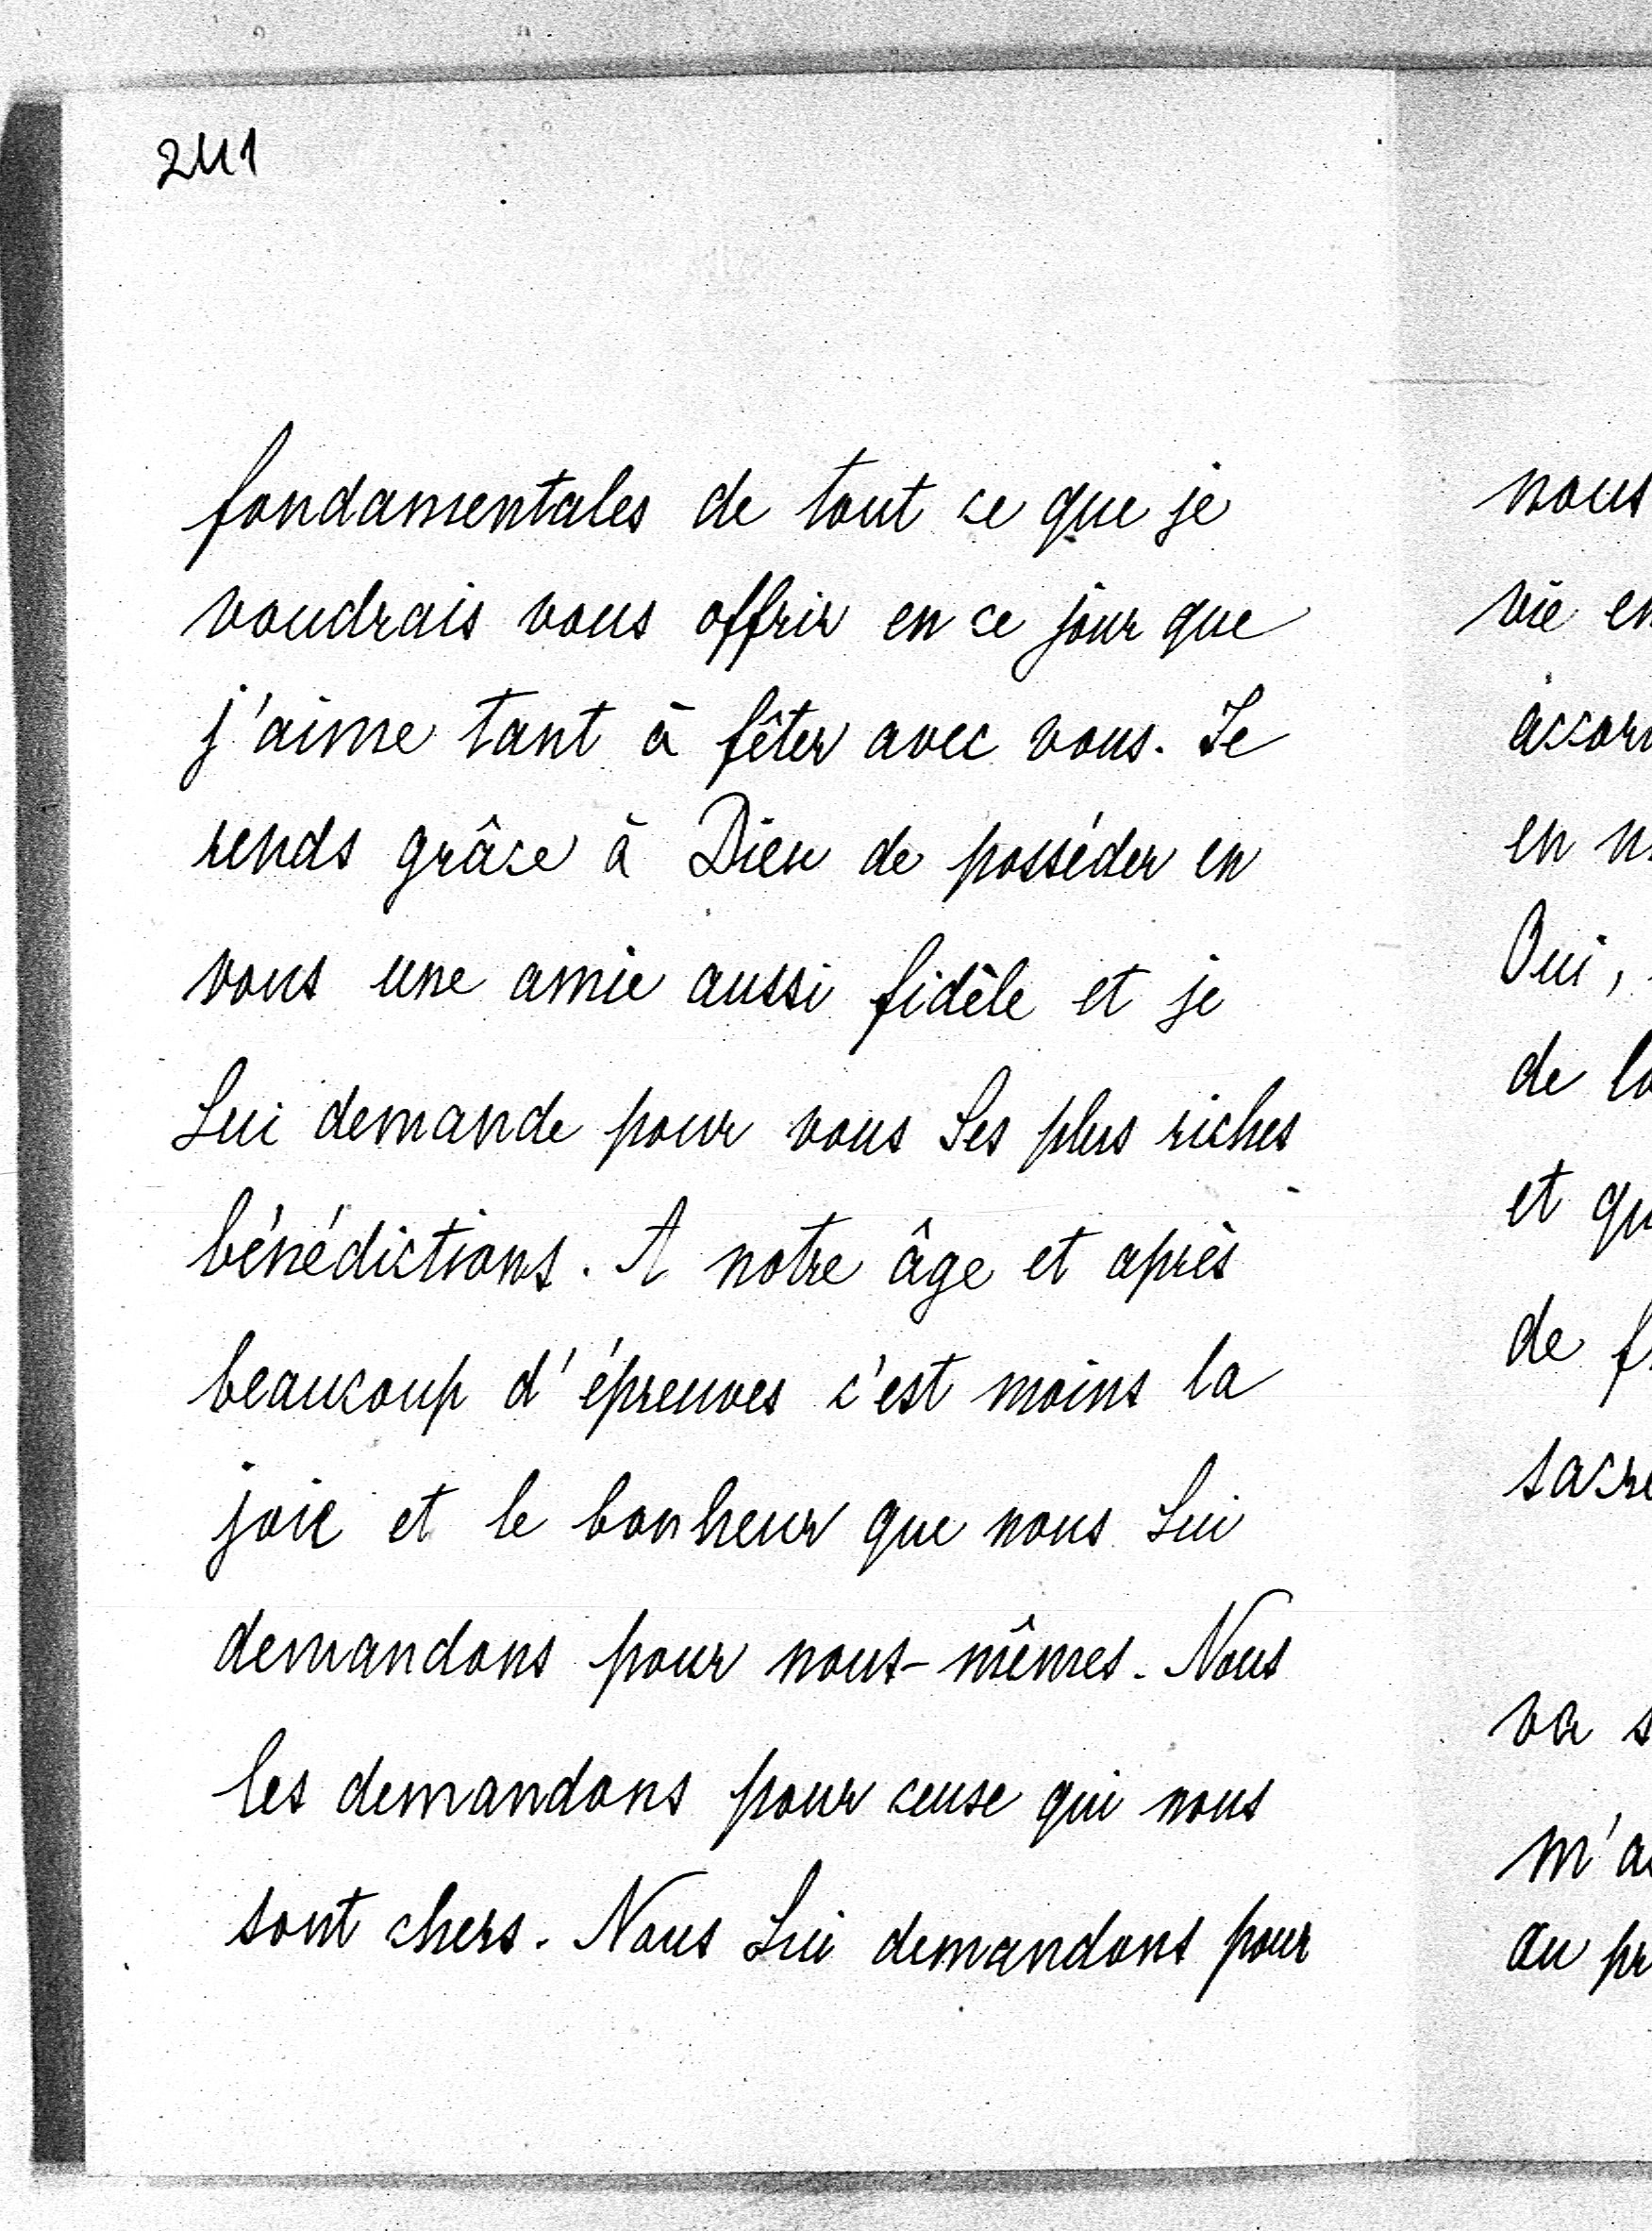 241
fondamentales de tout ce que je
voudrais vous offrir en ce jour que
j'aime tant à fêter avec vous. Je
rends grâce à Dieu de posséder en
vous une amie aussi fidèle et je
Lui demande pour vous Ses plus riches
bénédictions. A notre âge et après
beaucoup d'épreuves c'est moins la
joie et le bonheur que nous Lui
demandons pour nous-mêmes. Nous
les demandons pour ceux qui nous
sont chers. Nous Lui demandons pour
nous
vie en
accor
en n
Oui,
de la
et qu
de f
sacré
va s
m'a
au pr